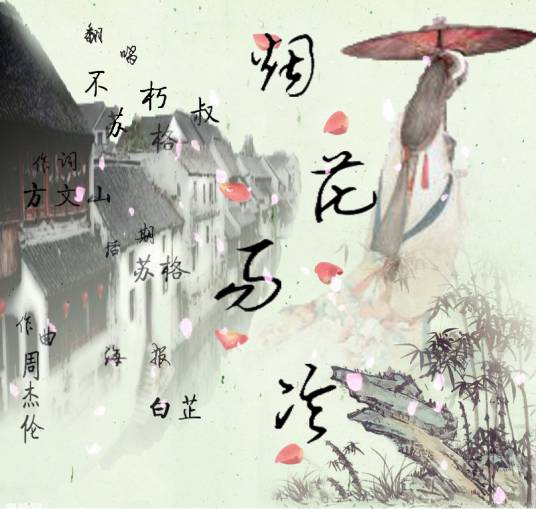 烟花易冷
翻唱
不朽叔
苏格
作词
方文山
后期
苏格
作曲
周杰伦
海报
白芷